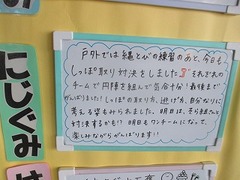 にじぐみ
戸外では縄とびの練習のあと、今日も
しっぽ取り対決をしました それぞれの
チームで円陣を組んで気合十分！最後まで
がんばりました！しっぽの取り方、逃げ方、自分なりに
考える姿もみられました。明日は、そら組さんと
対決するかも!? 明日もワンチームになって、
楽しみながらがんばります!!
は